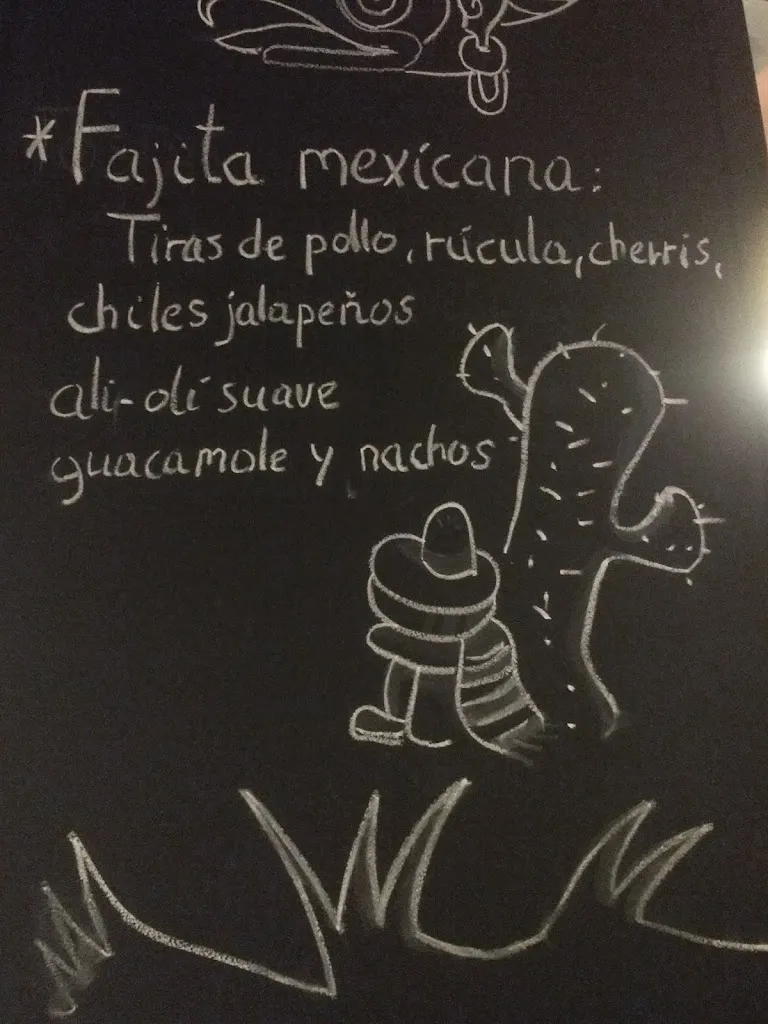 *Fajita mexicana:
Tiras de pollo, rúcula, cherris,
chiles jalapeños
ali-oli suave
guacamole y nachos